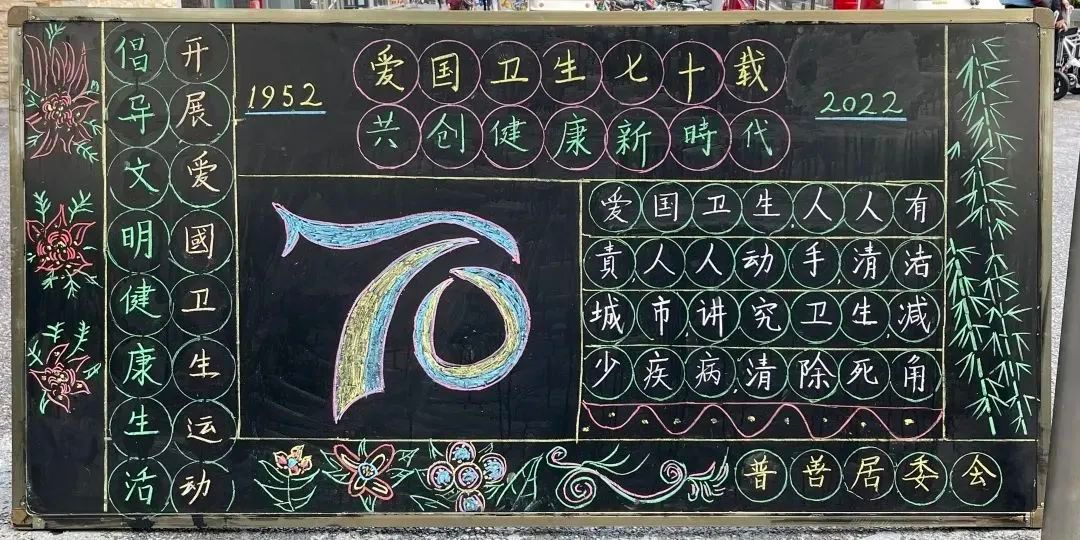 开展爱國卫生运动
倡导文明健康生活
1952
爱国卫生七十载
2022
共创健康新時代
70
爱国卫生,人人有
責,人人动手,清洁
城市,讲究卫生,减
少疾病,清除死角
普善居委会